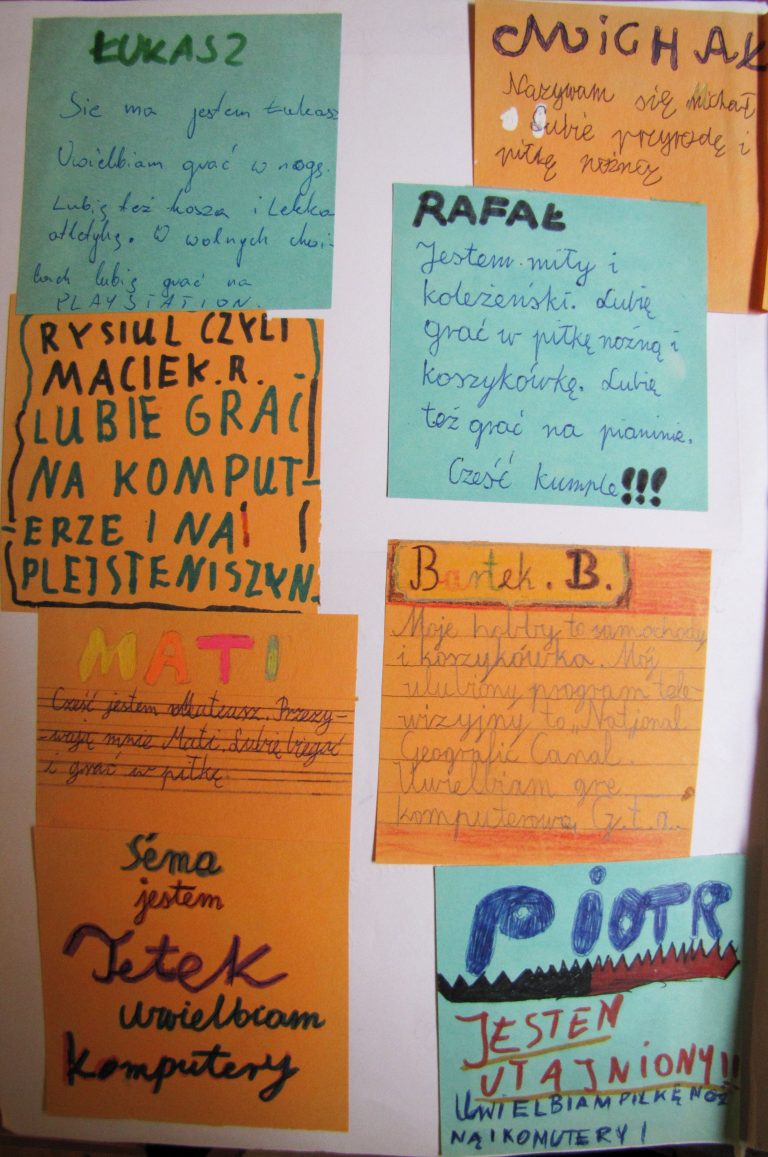 ŁUKASZ
Sie ma jestem Łukasz
Uwielbiam grać w nogę.
Lubię też kosza i Lekką
atletykę. W wolnych chwi-
lach lubię grać na
PLAYSTATION.
MICHAŁ
Nazywam się Michał
Lubie przyrodę i
piłkę nożną
RAFAŁ
Jestem miły i
koleżeński. Lubię
grać w piłkę nożną i
koszykówkę. Lubię
też grać na pianinie.
Cześć kumple!!!
RYSIUL CZYLI
MACIEK.R.
LUBIE GRAĆ
NA KOMPUT-
ERZE I NA
PLEJSTENISZYN.
Bartek. B.
Moje hobby to samochody
i koszykówka. Mój
ulubiony program tele-
wizyjny to „National
Geografic Canal
Uwielbiam grę
komputerową G.t.a.
MATI
Cześć jestem Mateusz. Przezy-
-wają mnie Mati. Lubię biegać
i grać w piłkę.
Séma
jestem
Tetek
uwielbiam
komputery
PIOTR
JESTEM
UTAJNIONY!!
UWIELBIAM PIŁKĘ NOŻ
NĄ I KOMUTERY!